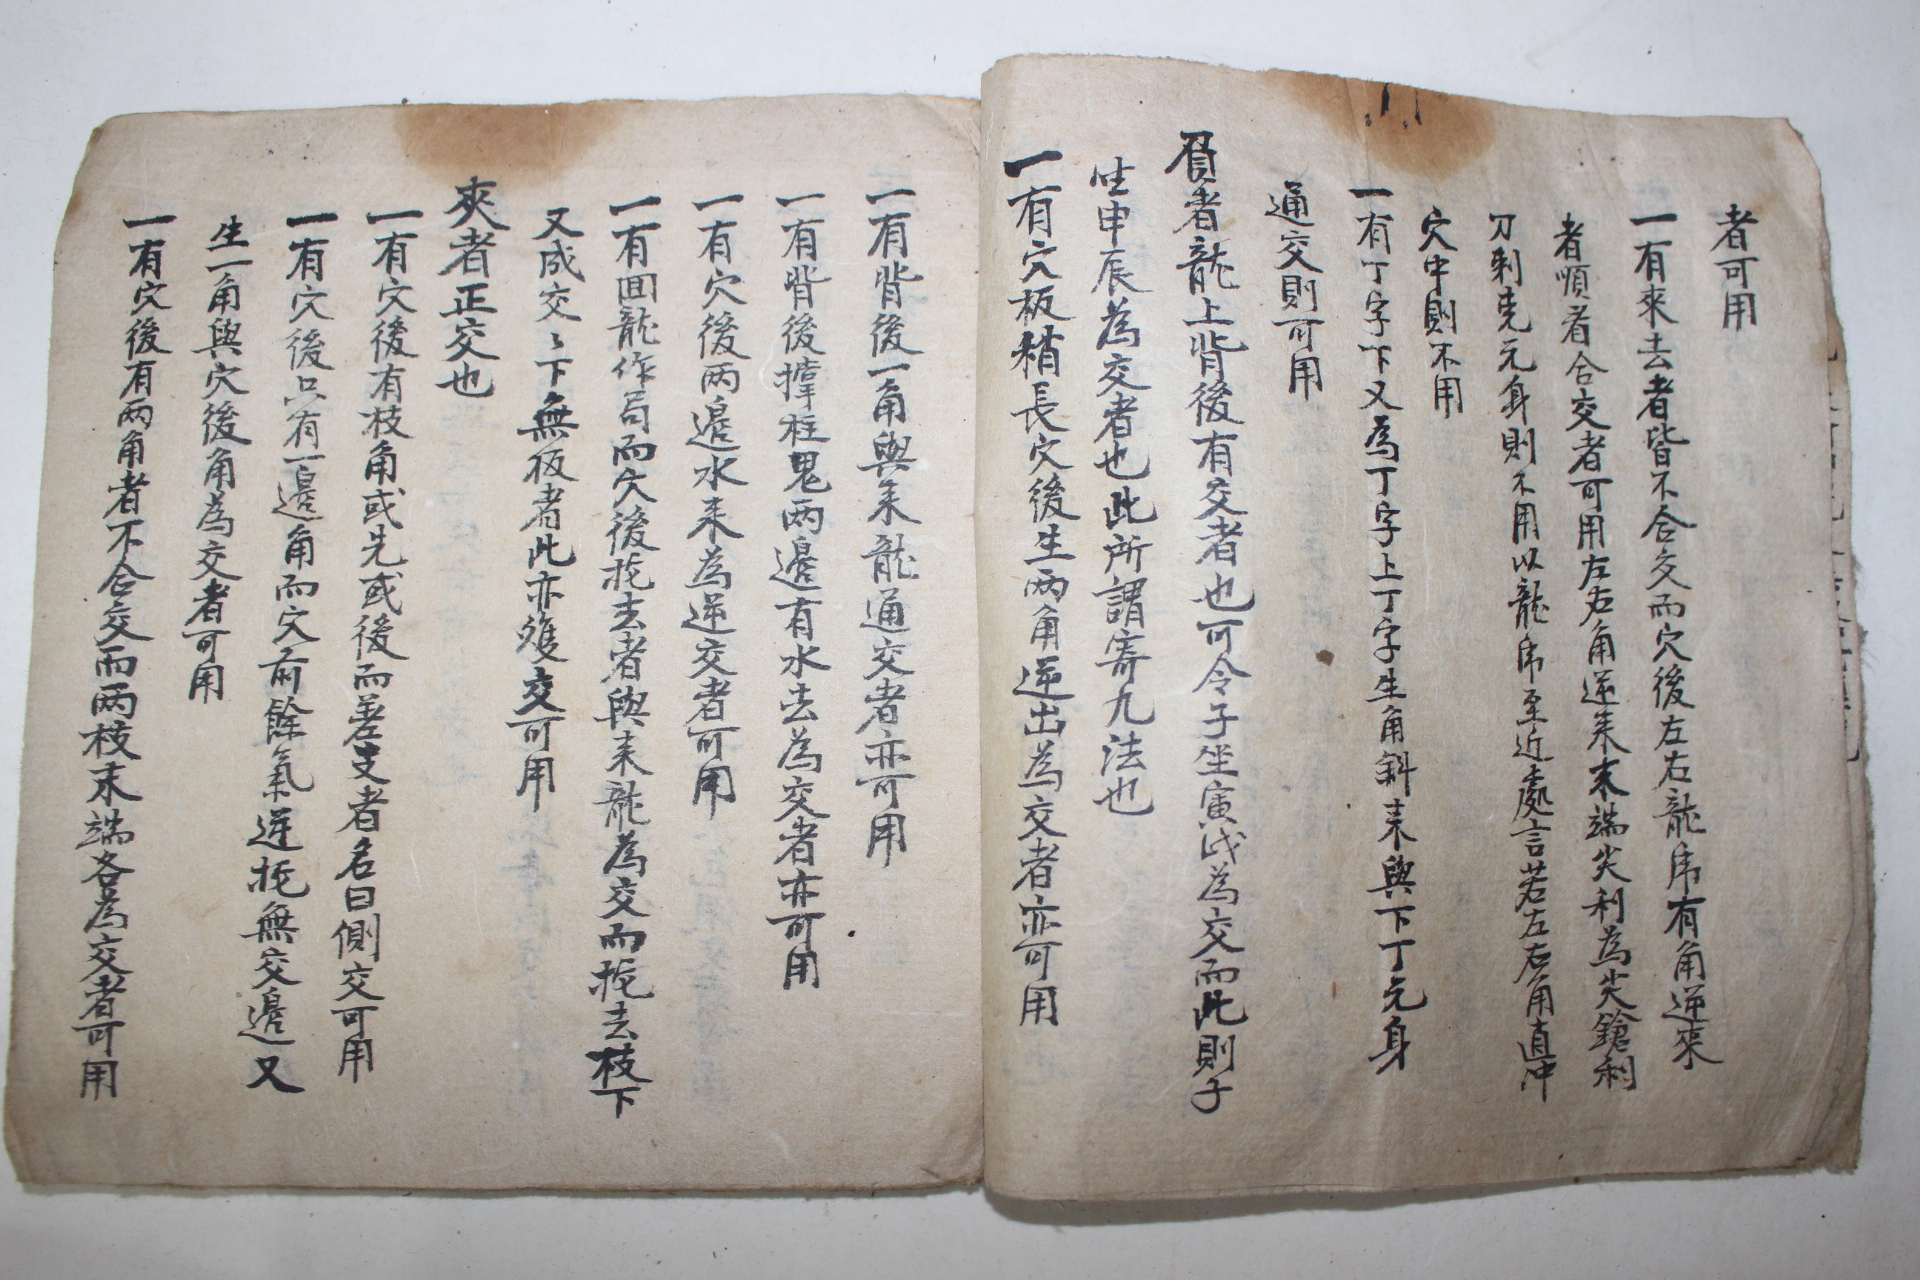 者可用
一有來去者皆不合交而穴後左右龍席有角逆來
者順者合交者可用左右角逆来末端尖利為尖鎗利
刀刺先元身則不用以龍席至近處言若左右角直冲
穴中則不用
一有丁字下又為丁字上丁字生角斜来與下丁元身
通交則可用
負者龍上背後有交者也可令子坐寅戌為交而此則子
坐申辰為交者也此所謂寄九法也
一有穴板稍長穴後生两角逆出為交者亦可用
一有背後一角與来龍通交者亦可用
一有背後撑柱鬼两邊有水去為交者亦可用
一有穴後两邊水来為逆交者可用
一有回龍作局而穴後托去者與来龍為交而托去枝下
又成交〻下無板者此亦雙交可用
夾者正交也
一有穴後有枝角或先或後而差支者名曰側交可用
一有穴後只有一邊角而穴前餘氣逆托無交邊又
生一角與穴後角為交者可用
一有穴後有两角者不合交而两枝末端各為交者可用